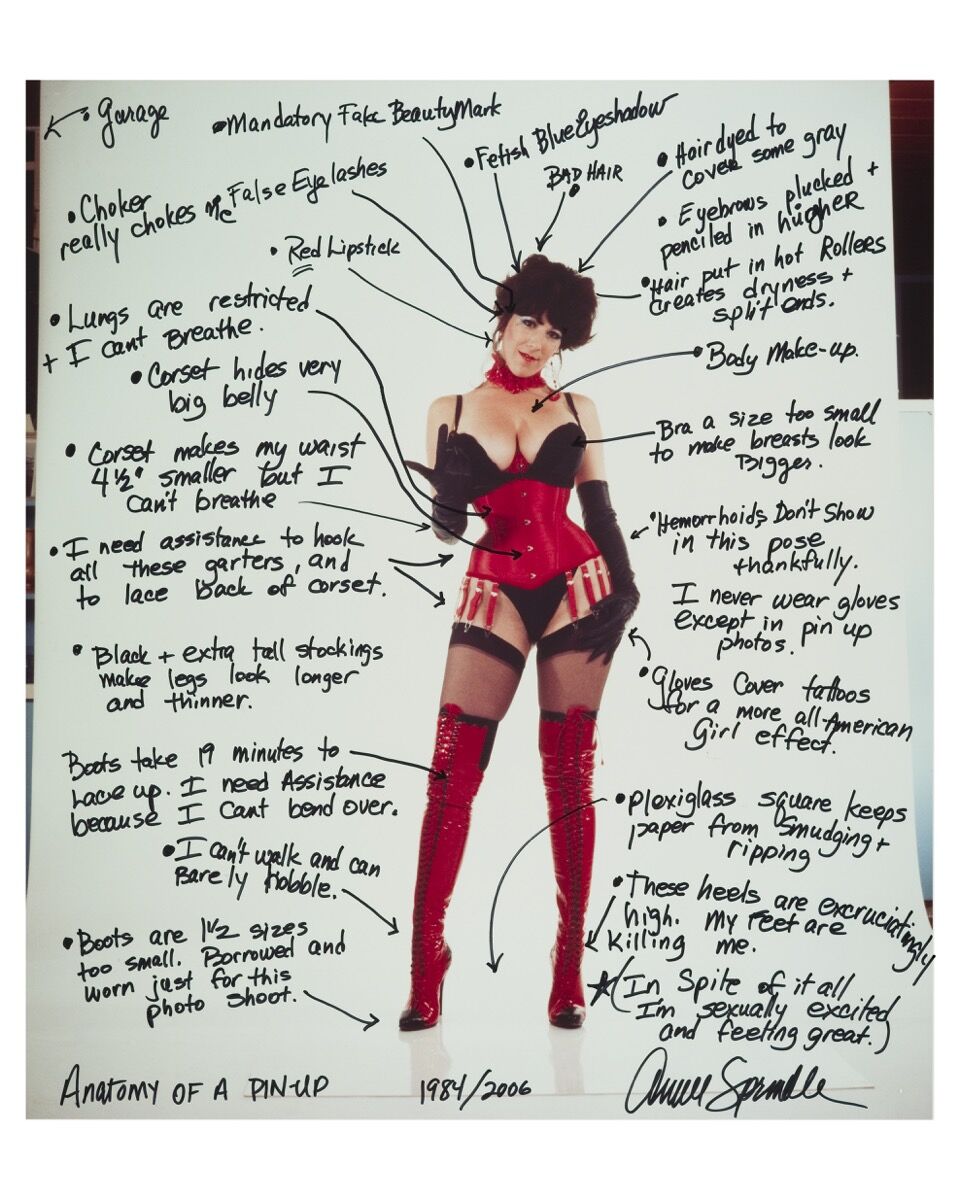 • Garage
• Mandatory Fake Beauty Mark
• Fetish Blue Eyeshadow
BAD HAIR
• Hair dyed to
cover some gray
• Choker
really chokes me
False Eyelashes
• Eyebrows plucked +
penciled in higher
• Red Lipstick
• Hair put in hot Rollers
creates dryness +
split ends.
• Lungs are restricted
+ I can't Breathe.
• Body Make-up.
• Corset hides very
big belly
Bra a size too small
to make breasts look
Bigger.
• Corset makes my waist
4½" smaller but I
can't breathe
• Hemorrhoids Don't Show
in this pose
thankfully.
• I need assistance to hook
all these garters, and
to lace back of corset.
I never wear gloves
except in pin up
photos.
• Black + extra tall stockings
make legs look longer
and thinner.
• Gloves Cover tattoos
for a more all-American
Girl effect.
Boots take 19 minutes to
Lace up. I need Assistance
because I Cant bend over.
• plexiglass square keeps
paper from smudging +
ripping
• I can't walk and can
Barely hobble.
• These heels are excruciatingly
high. My feet are
killing me.
• Boots are 1½ sizes
too small. Borrowed and
worn just for this
photo shoot.
★(In Spite of it all
I'm sexually excited
and feeling great.)
ANATOMY OF A PIN-UP
1984/2006
Annie Sprinkle